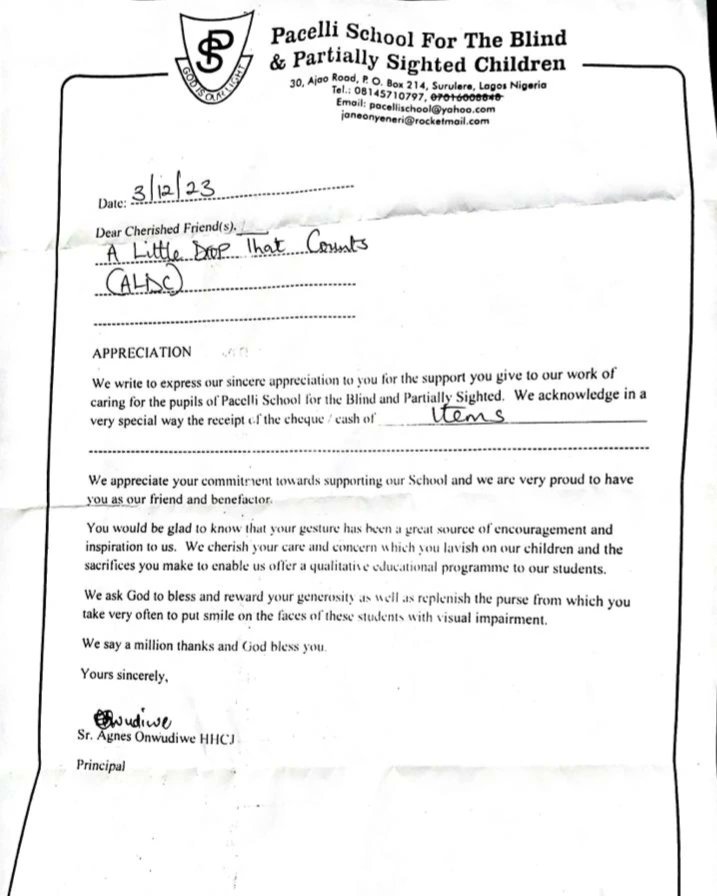 Pacelli School For The Blind
& Partially Sighted Children
30, Ajao Road, P. O. Box 214, Surulere, Lagos Nigeria
Tel.: 08145710797, 07016008848
Email: pacellischool@yahoo.com
janeonyeneri@rocketmail.com
SP
GOD IS OUR LIGHT
Date: 3/12/23
Dear Cherished Friend(s),
A Little Drop That Counts
(ALDC)
APPRECIATION
We write to express our sincere appreciation to you for the support you give to our work of
caring for the pupils of Pacelli School for the Blind and Partially Sighted. We acknowledge in a
very special way the receipt of the cheque / cash of Items
We appreciate your commitment towards supporting our School and we are very proud to have
you as our friend and benefactor.
You would be glad to know that your gesture has been a great source of encouragement and
inspiration to us. We cherish your care and concern which you lavish on our children and the
sacrifices you make to enable us offer a qualitative educational programme to our students.
We ask God to bless and reward your generosity as well as replenish the purse from which you
take very often to put smile on the faces of these students with visual impairment.
We say a million thanks and God bless you.
Yours sincerely,
Sr. Agnes Onwudiwe HHCJ
Principal